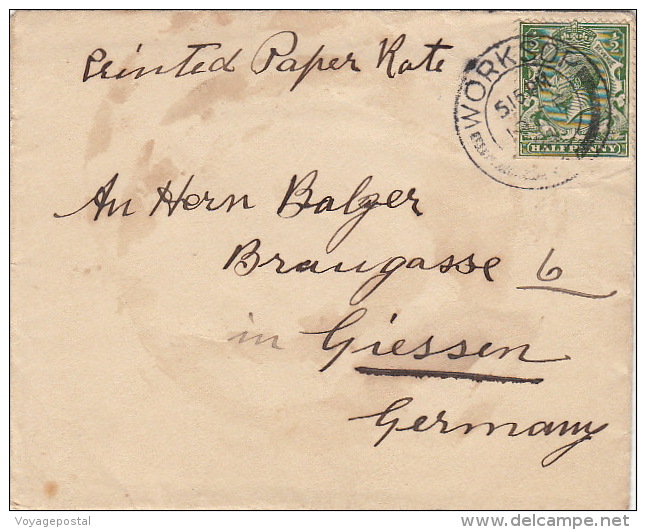 Printed Paper Rate
½ ½
WORKSOP
5.15PM
HALFPENNY
An Herrn Balzer
Braugasse 6
in Giessen
Germany
Voyagepostal
delcampe.net